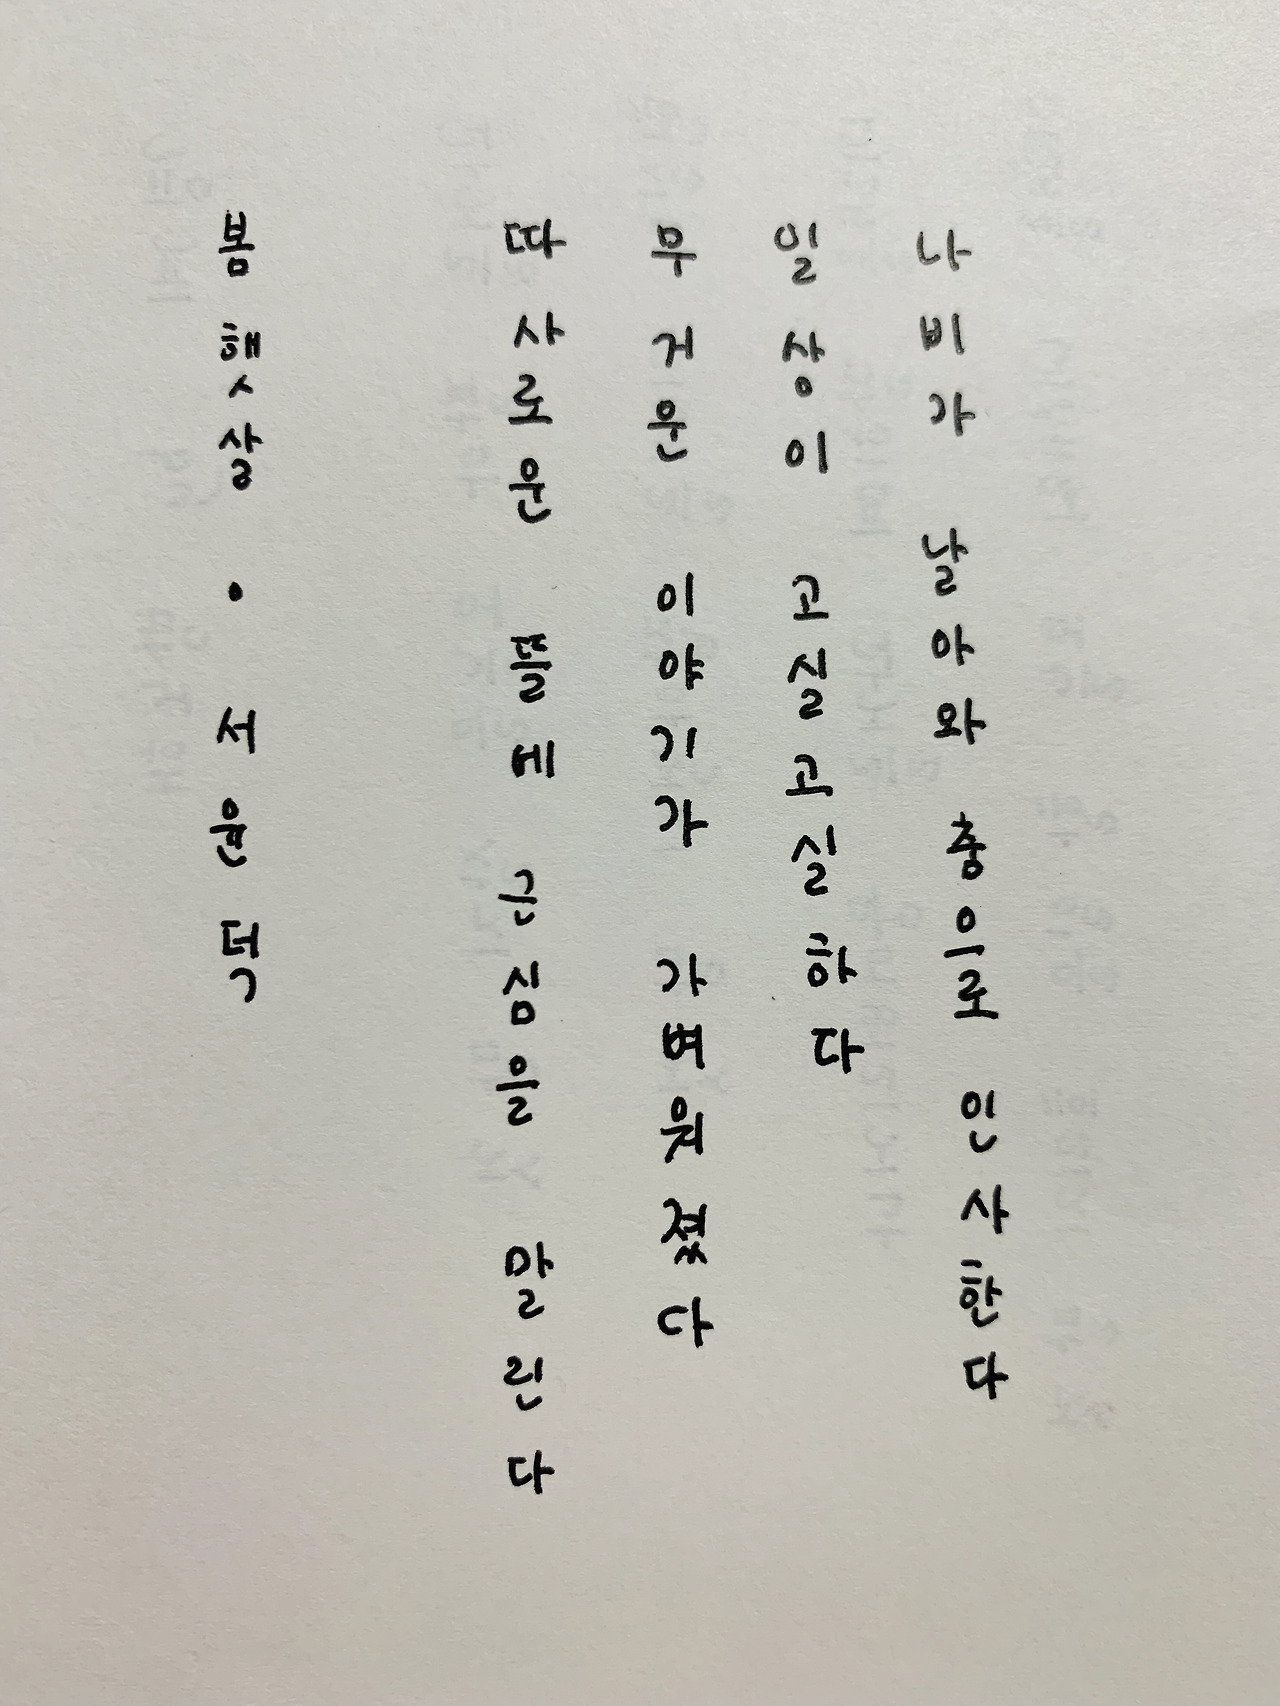 봄 햇살 • 서윤덕
따사로운 뜰에 근심을 말린다
무거운 이야기가 가벼워졌다
일상이 고실고실하다
나비가 날아와 춤으로 인사한다